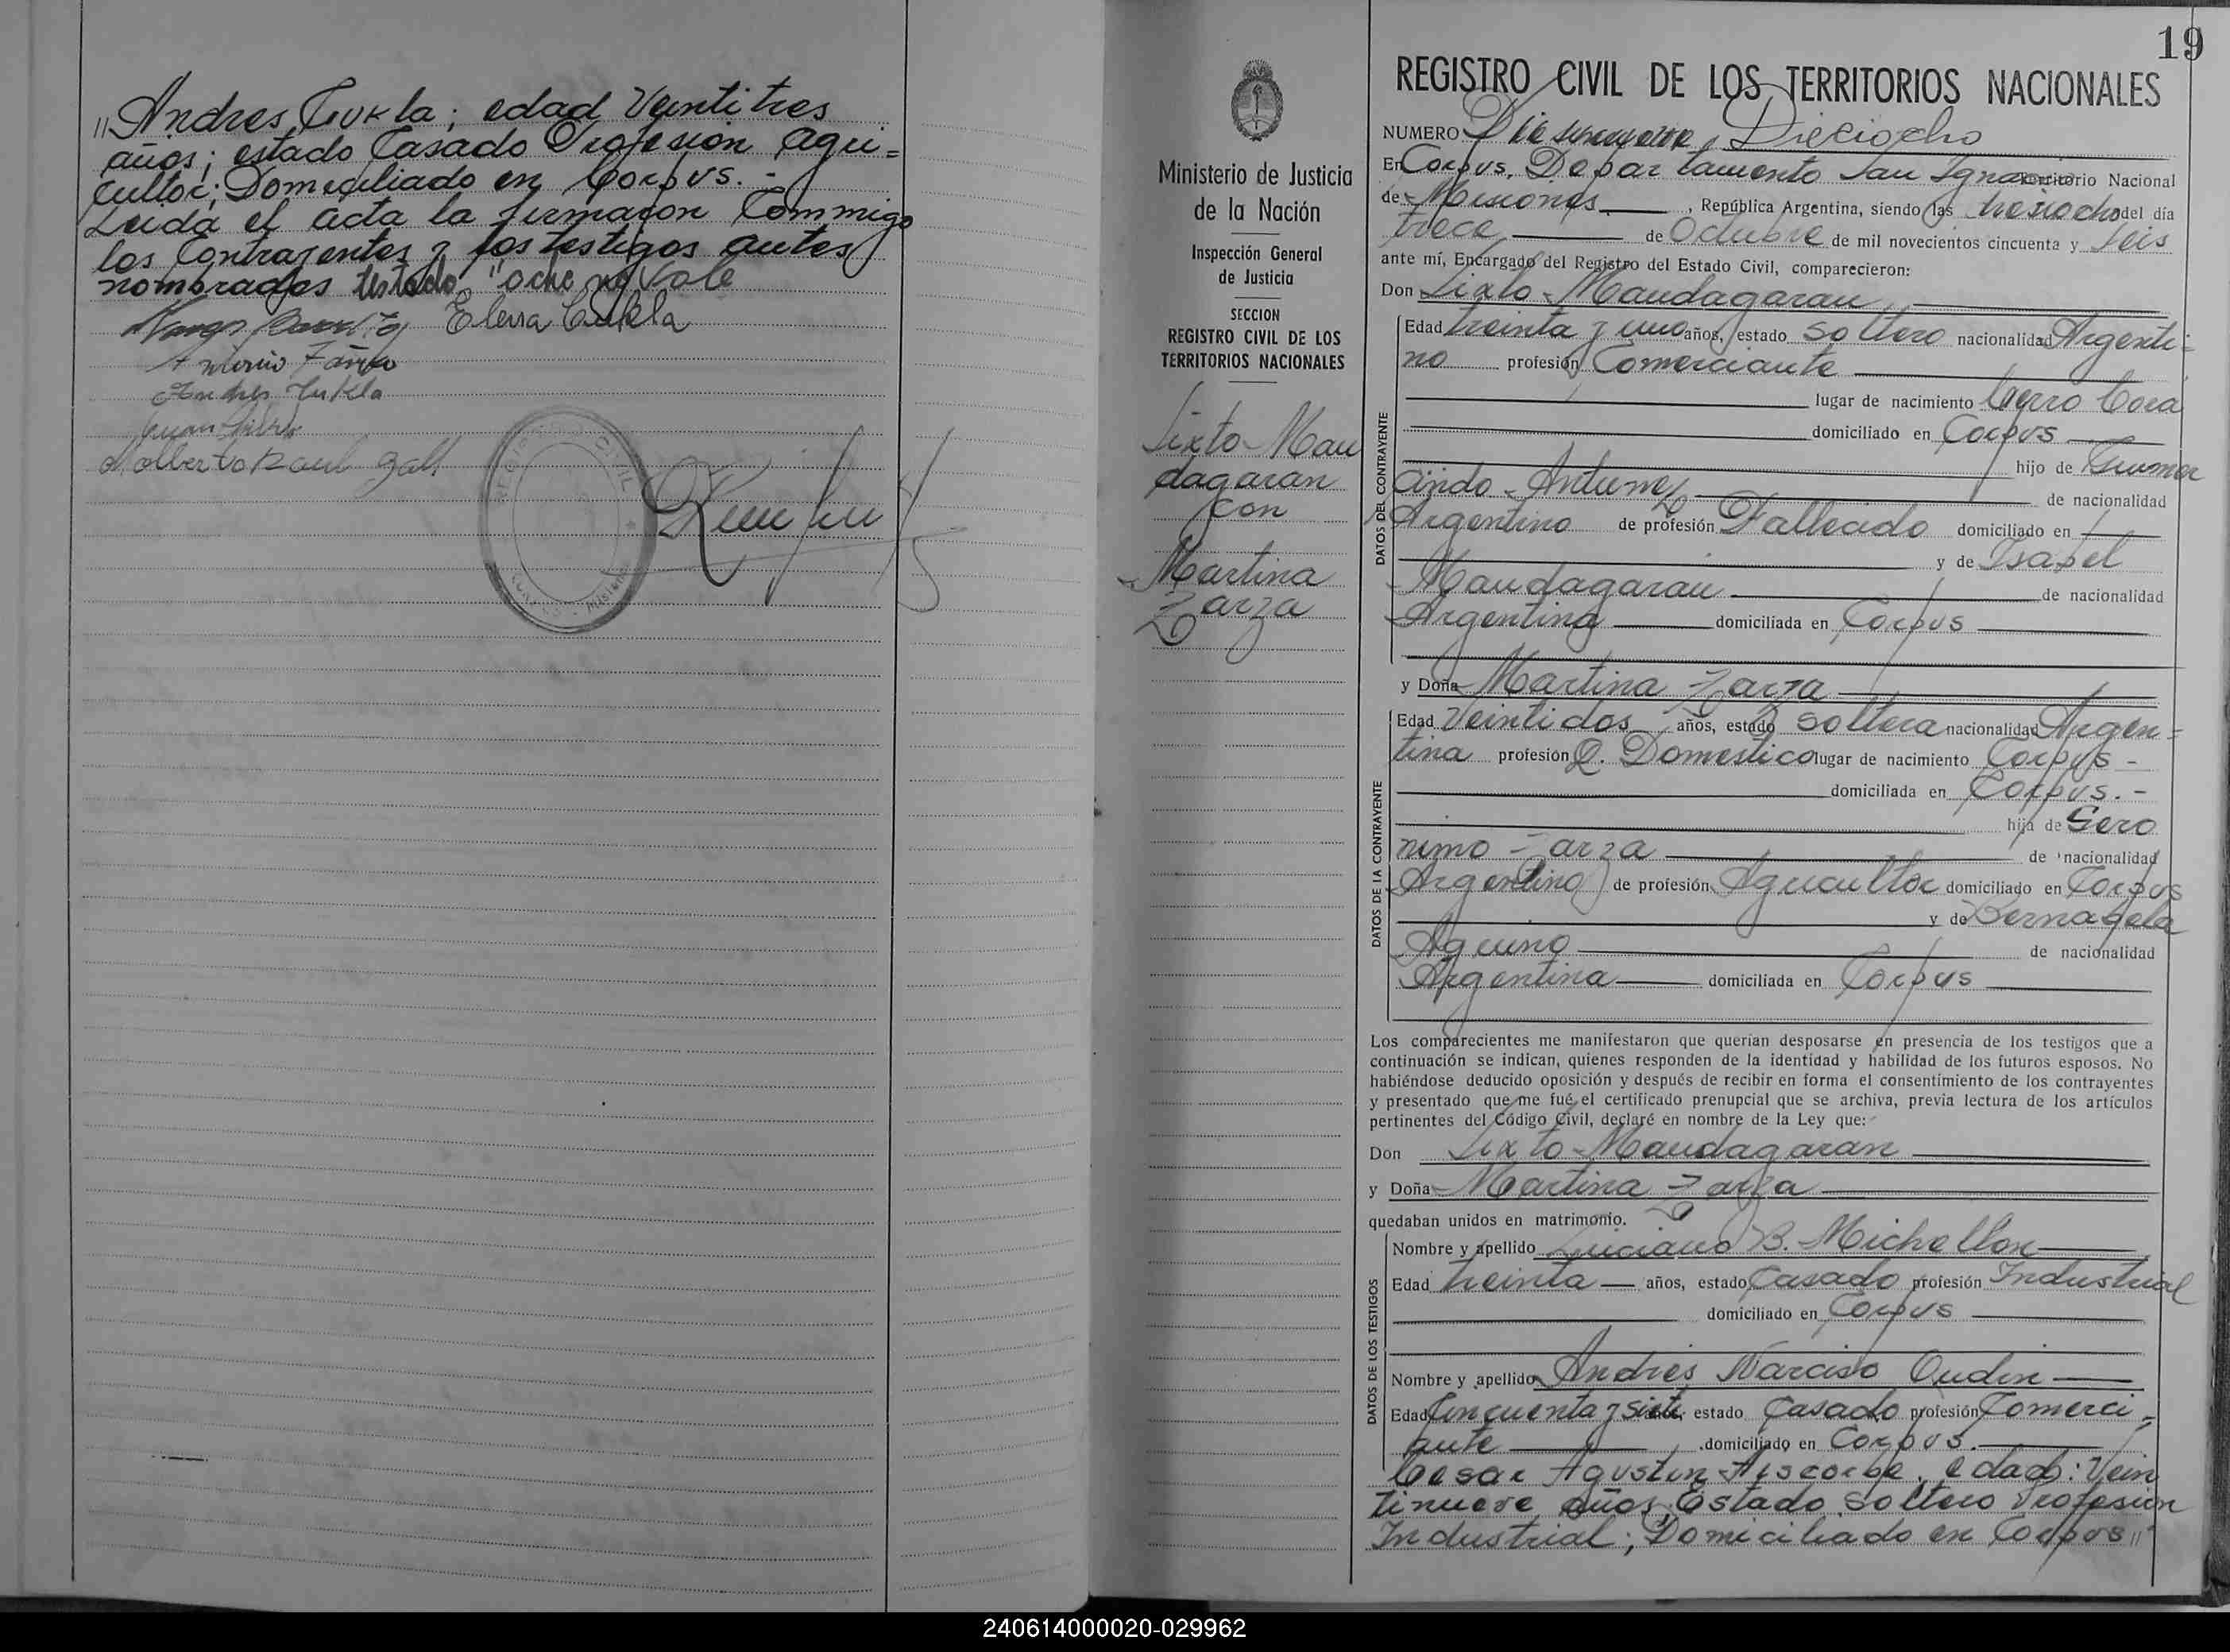 "Andres Cukla; edad Veintitres
años; estado Casado Profesion agri=
cultor; Domiciliado en Corpus.-
Leida el acta la firmaron Commigo
los Contrayentes y los testigos antes
nombrados testado "ocho no Vale
Elena Cukla
Antonio
Andres Cukla
Juan
Raul Gall
REGISTRO CIVIL
19
REGISTRO CIVIL DE LOS TERRITORIOS NACIONALES
Ministerio de Justicia
de la Nación
Inspección General
de Justicia
SECCION
REGISTRO CIVIL DE LOS
TERRITORIOS NACIONALES
Sixto Mau
dagaran
con
Martina
Zarza
NUMERO Dieciocho
En Corpus, Departamento San Ignacio Territorio Nacional
de Misiones , República Argentina, siendo las del día
trece de Octubre de mil novecientos cincuenta y Seis
ante mí, Encargado del Registro del Estado Civil, comparecieron:
Don Sixto Maudagaran
DATOS DEL CONTRAYENTE
Edad treinta y uno años, estado soltero nacionalidad Argenti=
no profesión Comerciante
lugar de nacimiento Cerro Cora
domiciliado en Corpus
hijo de Gumer
cindo Antunez de nacionalidad
Argentino de profesión Fallecido domiciliado en
y de Isabel
Maudagarau de nacionalidad
Argentina domiciliada en Corpus
y Doña Martina Zarza
DATOS DE LA CONTRAYENTE
Edad Veintidos años, estado soltera nacionalidad Argen=
tina profesión Q. Domestico lugar de nacimiento Corpus -
domiciliada en Corpus.-
hija de Gero
nimo Zarza de nacionalidad
Argentino de profesión Agricultor domiciliado en Corpus
y de Bernabela
Aquino de nacionalidad
Argentina domiciliada en Corpus
Los comparecientes me manifestaron que querían desposarse en presencia de los testigos que a
continuación se indican, quienes responden de la identidad y habilidad de los futuros esposos. No
habiéndose deducido oposición y después de recibir en forma el consentimiento de los contrayentes
y presentado que me fué el certificado prenupcial que se archiva, previa lectura de los artículos
pertinentes del Código Civil, declaré en nombre de la Ley que:
Don Sixto Maudagaran
y Doña Martina Zarza
quedaban unidos en matrimonio.
DATOS DE LOS TESTIGOS
Nombre y apellido Luciano B. Michellon
Edad treinta años, estado Casado profesión Industrial
domiciliado en Corpus
Nombre y apellido Andres Narciso Oudin
Edad Cincuenta y siete años, estado Casado profesión Comerci=
ante domiciliado en Corpus.
Cesar Agustin Ascorbe, edad: Vein
tinueve años; Estado soltero Profesion
Industrial; Domiciliado en Corpus"
240614000020-029962